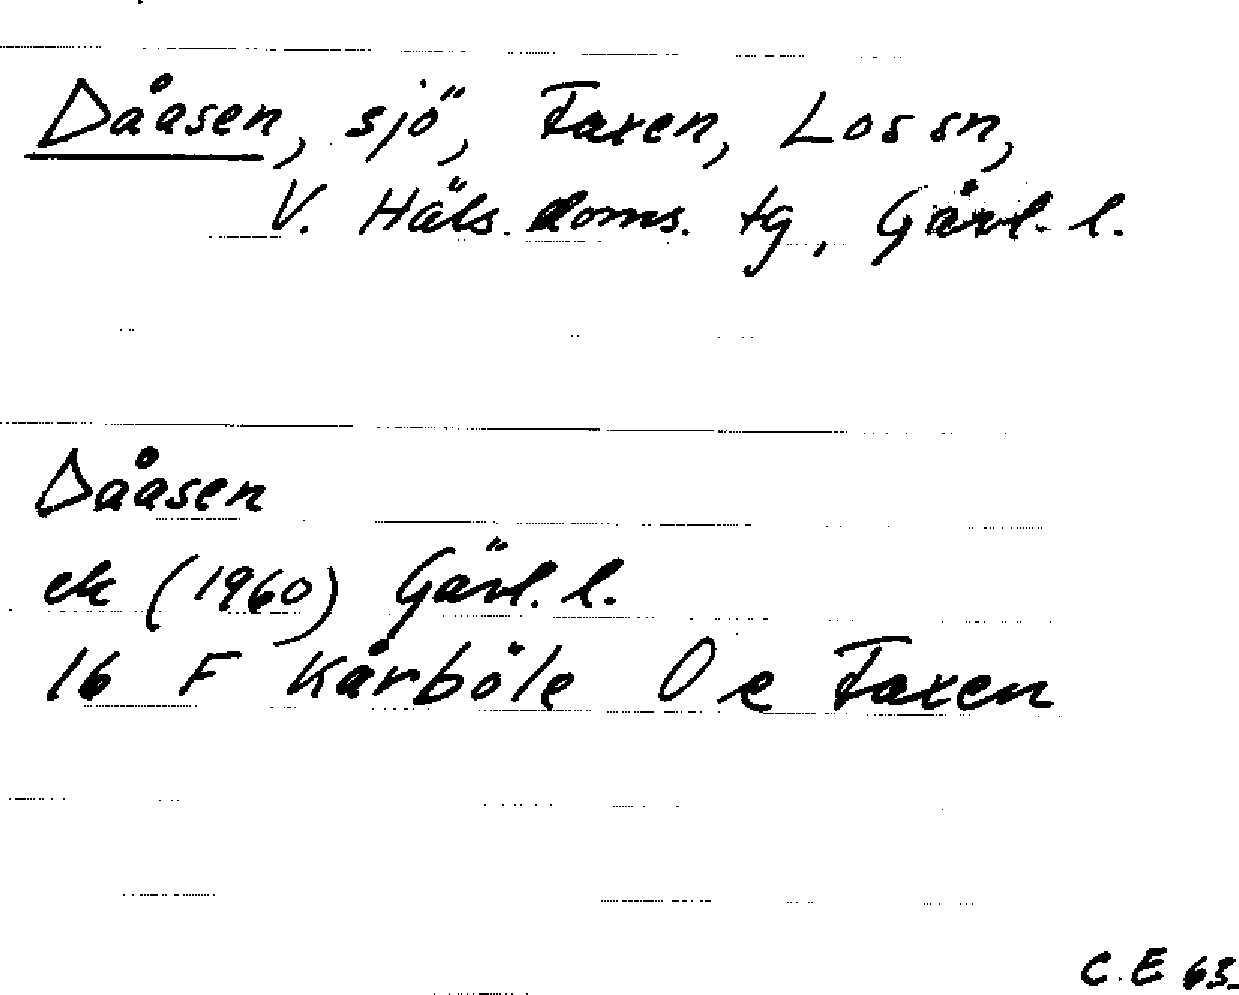 Dåasen, sjö, Faxen, Los sn,
V. Häls. doms. tg, Gävl. l.
Dåasen
ek (1960) Gävl. l.
16 F Kårböle O e Faxen
C. E 63